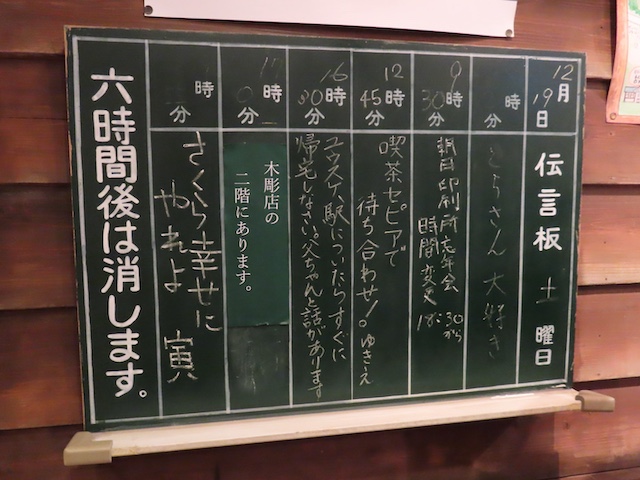 12月19日
伝言板 土曜日
時 分
とらさん 大好き
9時30分
朝日印刷所忘年会
時間変更
18:30から
12時45分
喫茶セピアで
待ち合わせ!。ゆきえ
16時00分
ユウスケ、駅についたらすぐに
帰宅しなさい。父ちゃんと話があります
時 分
木彫店の
二階にあります。
時 分
さくら幸せに
やれよ 寅
六時間後は消します。